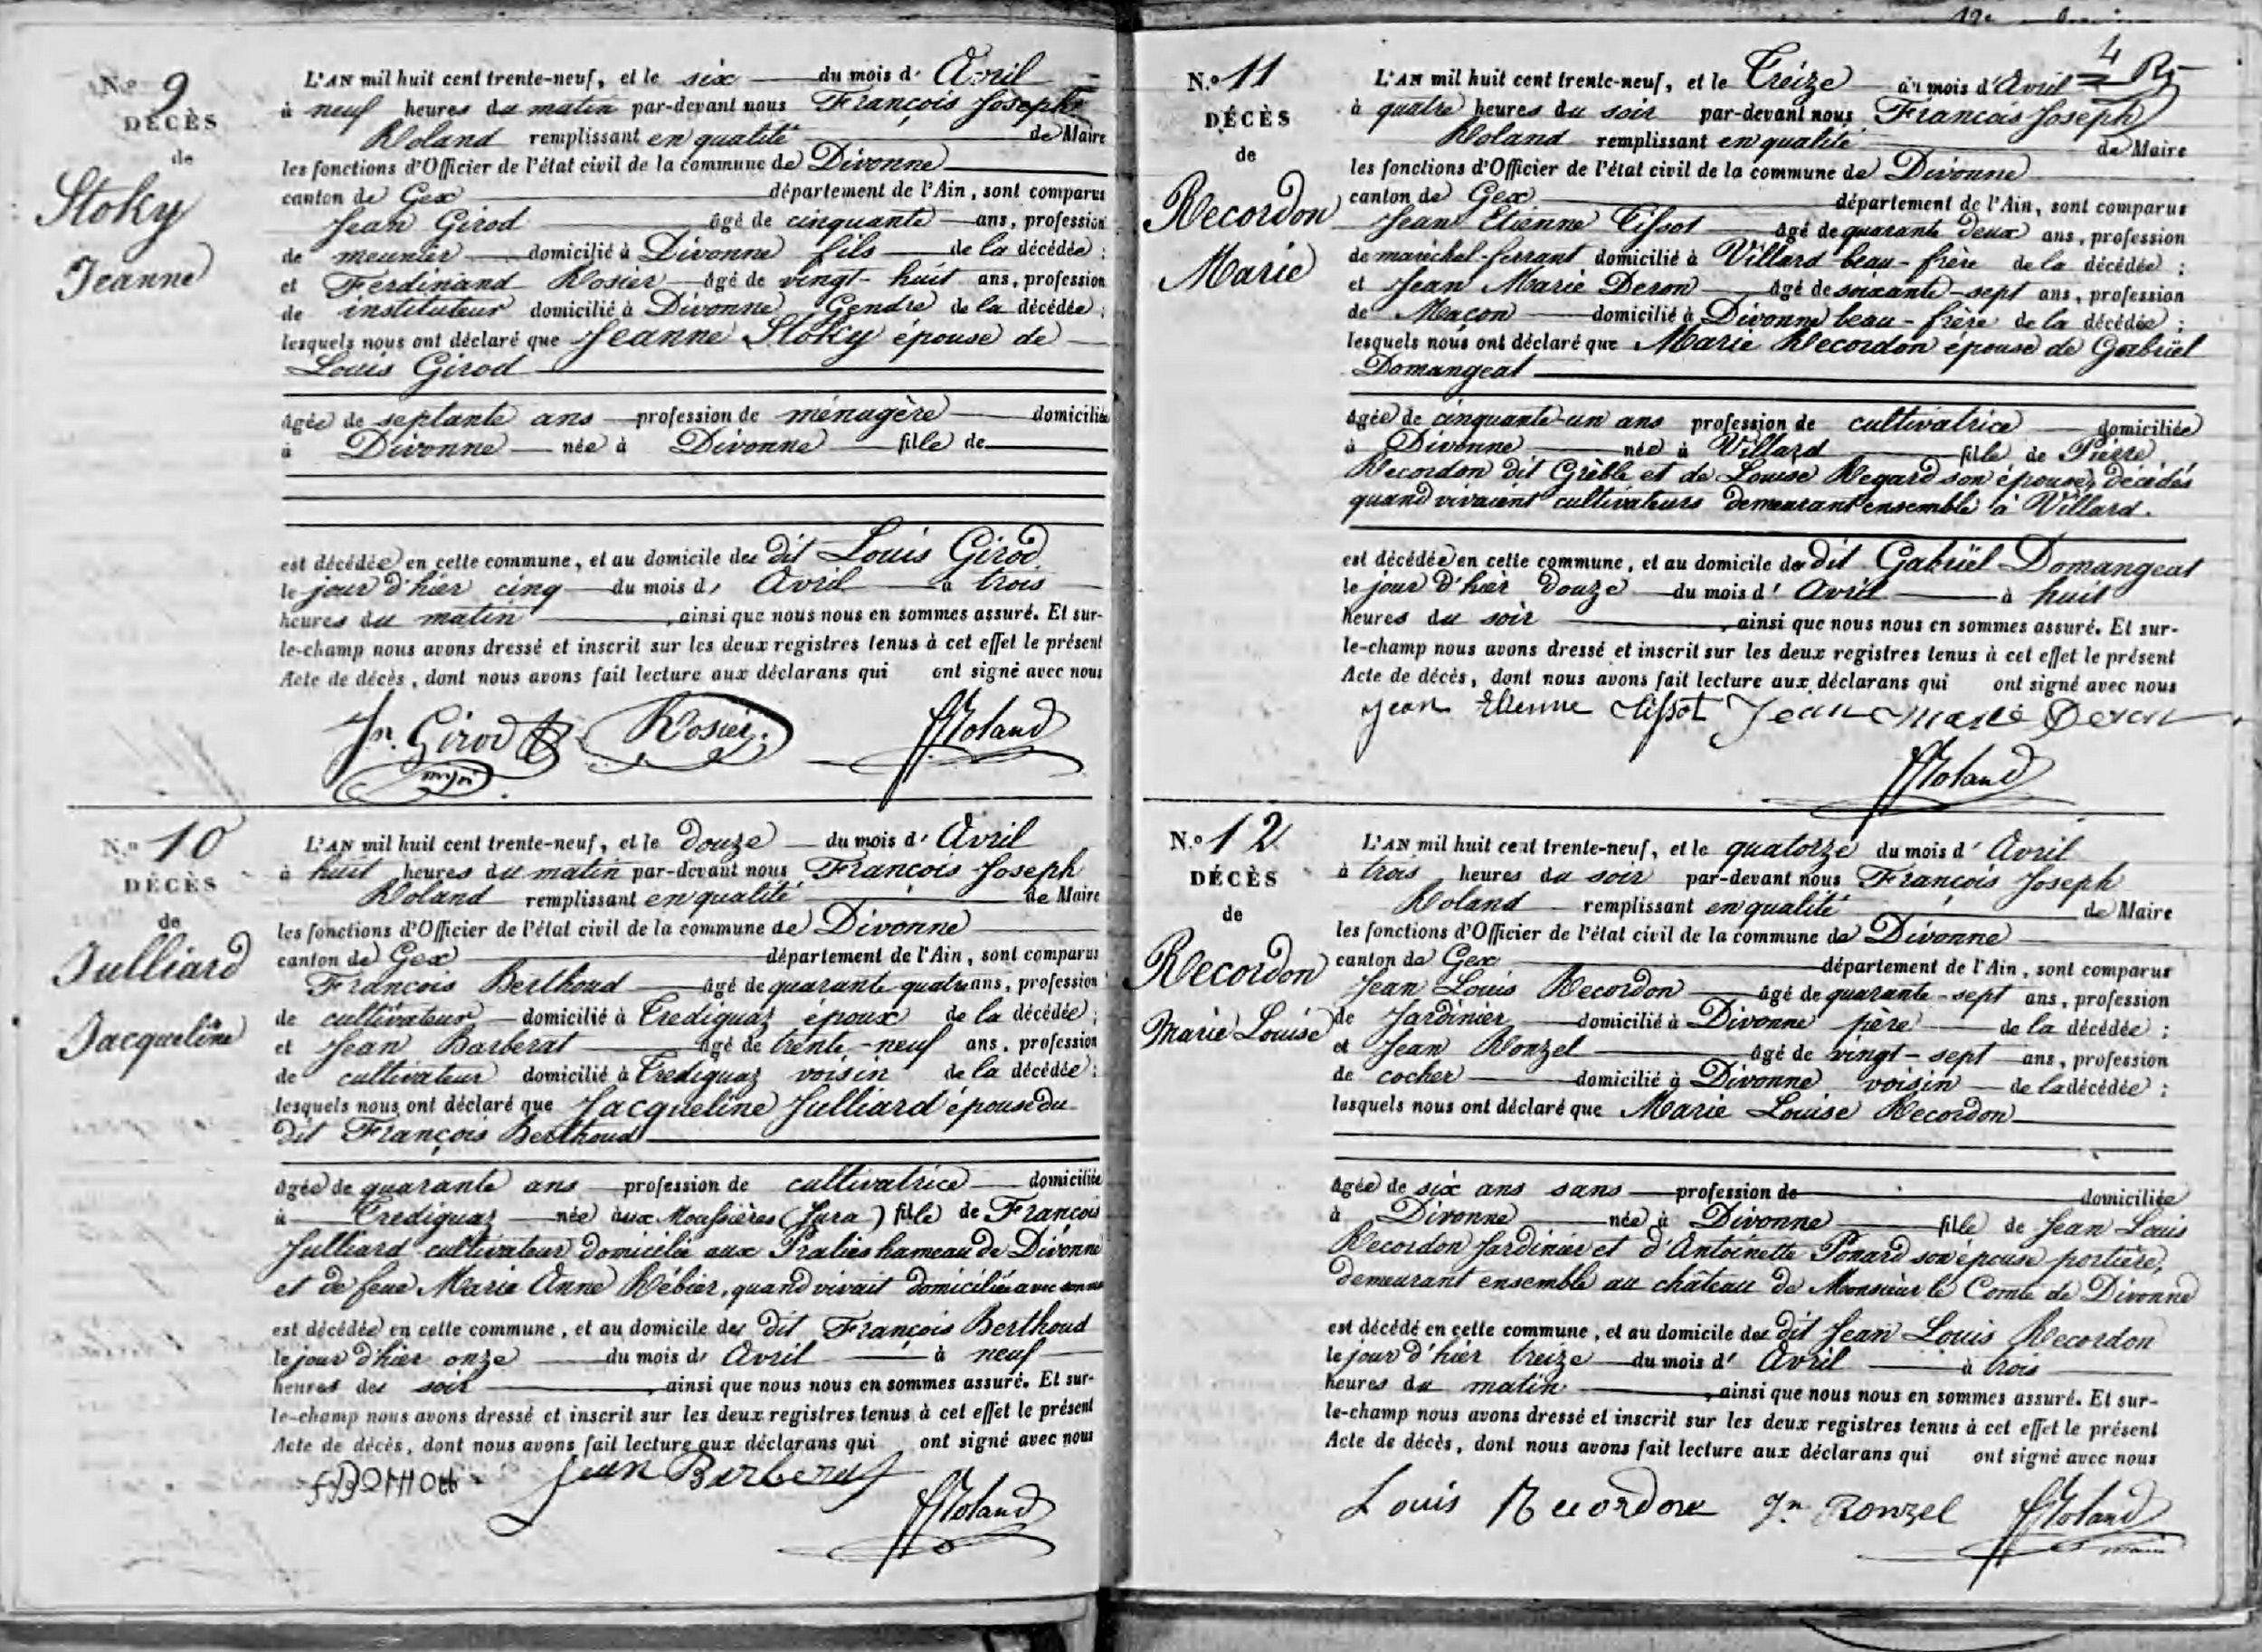 N.o 9
DÉCÈS
de
Stoky
Jeanne
L'AN mil huit cent trente-neuf, et le six du mois d' Avril
à neuf heures du matin par-devant nous François Joseph
Roland remplissant en qualité de Maire
les fonctions d'Officier de l'état civil de la commune de Divonne
canton de Gex département de l'Ain, sont comparus
Jean Girod âgé de cinquante ans, profession
de meunier domicilié à Divonne fils de la décédée ;
et Ferdinand Rosier âgé de vingt-huit ans, profession
de instituteur domicilié à Divonne Gendre de la décédée ;
lesquels nous ont déclaré que Jeanne Stoky épouse de
Louis Girod
âgée de septante ans profession de ménagère domiciliée
à Divonne née à Divonne fille de
est décédée en cette commune, et au domicile du dit Louis Girod
le jour d'hier cinq du mois d' Avril à trois
heures du matin , ainsi que nous nous en sommes assuré. Et sur-
le-champ nous avons dressé et inscrit sur les deux registres tenus à cet effet le présent
Acte de décès, dont nous avons fait lecture aux déclarans qui ont signé avec nous
Jn. Girod Rosier. Roland
N.o 10
DÉCÈS
de
Julliard
Jacqueline
L'AN mil huit cent trente-neuf, et le douze du mois d' Avril
à huit heures du matin par-devant nous François Joseph
Roland remplissant en qualité de Maire
les fonctions d'Officier de l'état civil de la commune de Divonne
canton de Gex département de l'Ain, sont comparus
François Berthoud âgé de quarante quatre ans, profession
de cultivateur domicilié à Trediguaz époux de la décédée ;
et Jean Barberat âgé de trente-neuf ans, profession
de cultivateur domicilié à Trediguaz voisin de la décédée ;
lesquels nous ont déclaré que Jacqueline Julliard épouse du
dit François Berthoud
âgée de quarante ans profession de cultivatrice domiciliée
à Trediguaz née aux Moussières (Jura) fille de François
Julliard cultivateur domicilié aux Pralies hameau de Divonne
et de feue Marie Anne Rébier, quand vivait domiciliée avec son
est décédée en cette commune, et au domicile du dit François Berthoud
le jour d'hier onze du mois d' Avril à neuf
heures du soir , ainsi que nous nous en sommes assuré. Et sur-
le-champ nous avons dressé et inscrit sur les deux registres tenus à cet effet le présent
Acte de décès, dont nous avons fait lecture aux déclarans qui ont signé avec nous
Jean Barberat
Roland
4
N.o 11
DÉCÈS
de
Recordon
Marie
L'AN mil huit cent trente-neuf, et le Treize du mois d'Avril
à quatre heures du soir par-devant nous François Joseph
Roland remplissant en qualité de Maire
les fonctions d'Officier de l'état civil de la commune de Divonne
canton de Gex département de l'Ain, sont comparus
Jean Etienne Tissot âgé de quarante deux ans, profession
de maréchal-ferrant domicilié à Villard beau-frère de la décédée ;
et Jean Marie Deron âgé de soixante-sept ans, profession
de Maçon domicilié à Divonne beau-frère de la décédée ;
lesquels nous ont déclaré que Marie Recordon épouse de Gabriël
Domangeat
âgée de cinquante-un ans profession de cultivatrice domiciliée
à Divonne née à Villard fille de Pierre
Recordon dit Grèble et de Louise Regard son épouse, décédés
quand vivaient cultivateurs demeurant ensemble à Villard.
est décédée en cette commune, et au domicile du dit Gabriël Domangeat
le jour d'hier douze du mois d' Avril à huit
heures du soir , ainsi que nous nous en sommes assuré. Et sur-
le-champ nous avons dressé et inscrit sur les deux registres tenus à cet effet le présent
Acte de décès, dont nous avons fait lecture aux déclarans qui ont signé avec nous
Jean Etienne Tissot Jean Marie Deron
Roland
N.o 12
DÉCÈS
de
Recordon
Marie Louise
L'AN mil huit cent trente-neuf, et le quatorze du mois d' Avril
à trois heures du soir par-devant nous François Joseph
Roland remplissant en qualité de Maire
les fonctions d'Officier de l'état civil de la commune de Divonne
canton de Gex département de l'Ain, sont comparus
Jean Louis Recordon âgé de quarante-sept ans, profession
de Jardinier domicilié à Divonne père de la décédée ;
et Jean Ronzel âgé de vingt-sept ans, profession
de cocher domicilié à Divonne voisin de la décédée ;
lesquels nous ont déclaré que Marie Louise Recordon
âgée de six ans sans profession de domiciliée
à Divonne née à Divonne fille de Jean Louis
Recordon Jardinier et d'Antoinette Ponard son épouse portière,
demeurant ensemble au château de Monsieur le Comte de Divonne
est décédé en cette commune, et au domicile du dit Jean Louis Recordon
le jour d'hier treize du mois d' Avril à trois
heures du matin , ainsi que nous nous en sommes assuré. Et sur-
le-champ nous avons dressé et inscrit sur les deux registres tenus à cet effet le présent
Acte de décès, dont nous avons fait lecture aux déclarans qui ont signé avec nous
Louis Recordon Jn Ronzel Roland